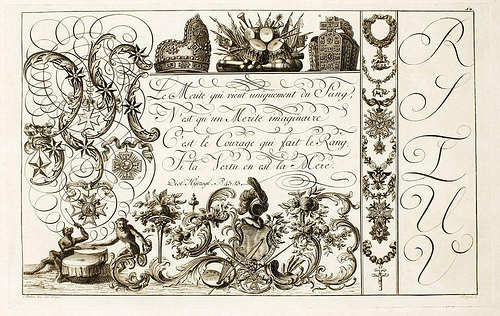 Le Merite qui vient uniquement du Sang,
N'est qu'un Merite imaginaire
C'est le Courage qui fait le Rang
Et la Vertu en est la Mere.
R
S
T
U
V